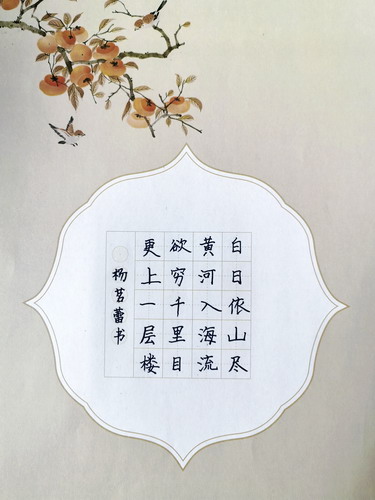 白日依山尽
黄河入海流
欲穷千里目
更上一层楼
杨茗蕾书